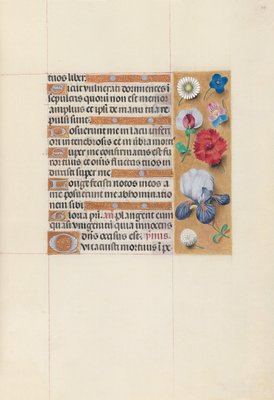 tuos liber.
Sicut vulnerati dormientes i
sepulcris quorū non est memor
amplius et ipsi de manu tua re
pulsi sunt.
Posuerunt me in lacu inferi
ori in tenebrosis et in umbra mortis
Super me confirmatus est fu
ror tuus et oēs fluctus tuos in
duxisti super me
Longe fecisti notos meos a
me posuerunt me abominatio
nem sibi
Gloria pri. añ Plangent eum
quasi unigenitū quia innocens
dn̄s occisus est. psalmus.
mortuis